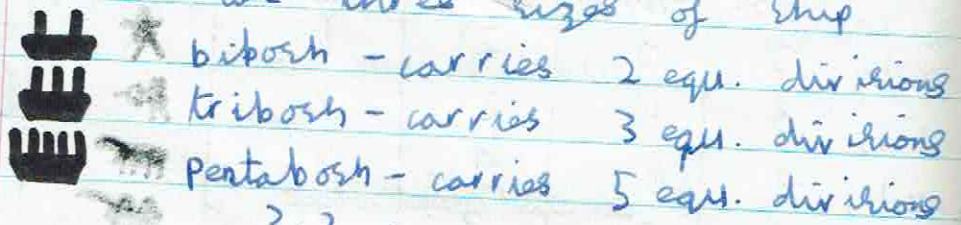 sizes of ship
bibosh - carries 2 equ. divisions
tribosh - carries 3 equ. divisions
pentabosh - carries 5 equ. divisions